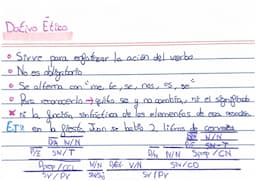 Dativo Ético
• Sirve para enfatizar la acción del verbo
• No es obligatorio
• Se alterna con "me, te, se, nos, os, se"
• Para reconocerlo → quita se y no cambia, ni el significado
ni la función sintáctica de los elementos de esa oración
EJ: en la fiesta Juan se bebió 2 litros de cerveza
Dt N/N N/N
P/E SN/T SN-T
Dt N/N Sprep/CN
Sprep/CCL N/N N/V SN/CD
SN/Suj SV/PV
SV/PV